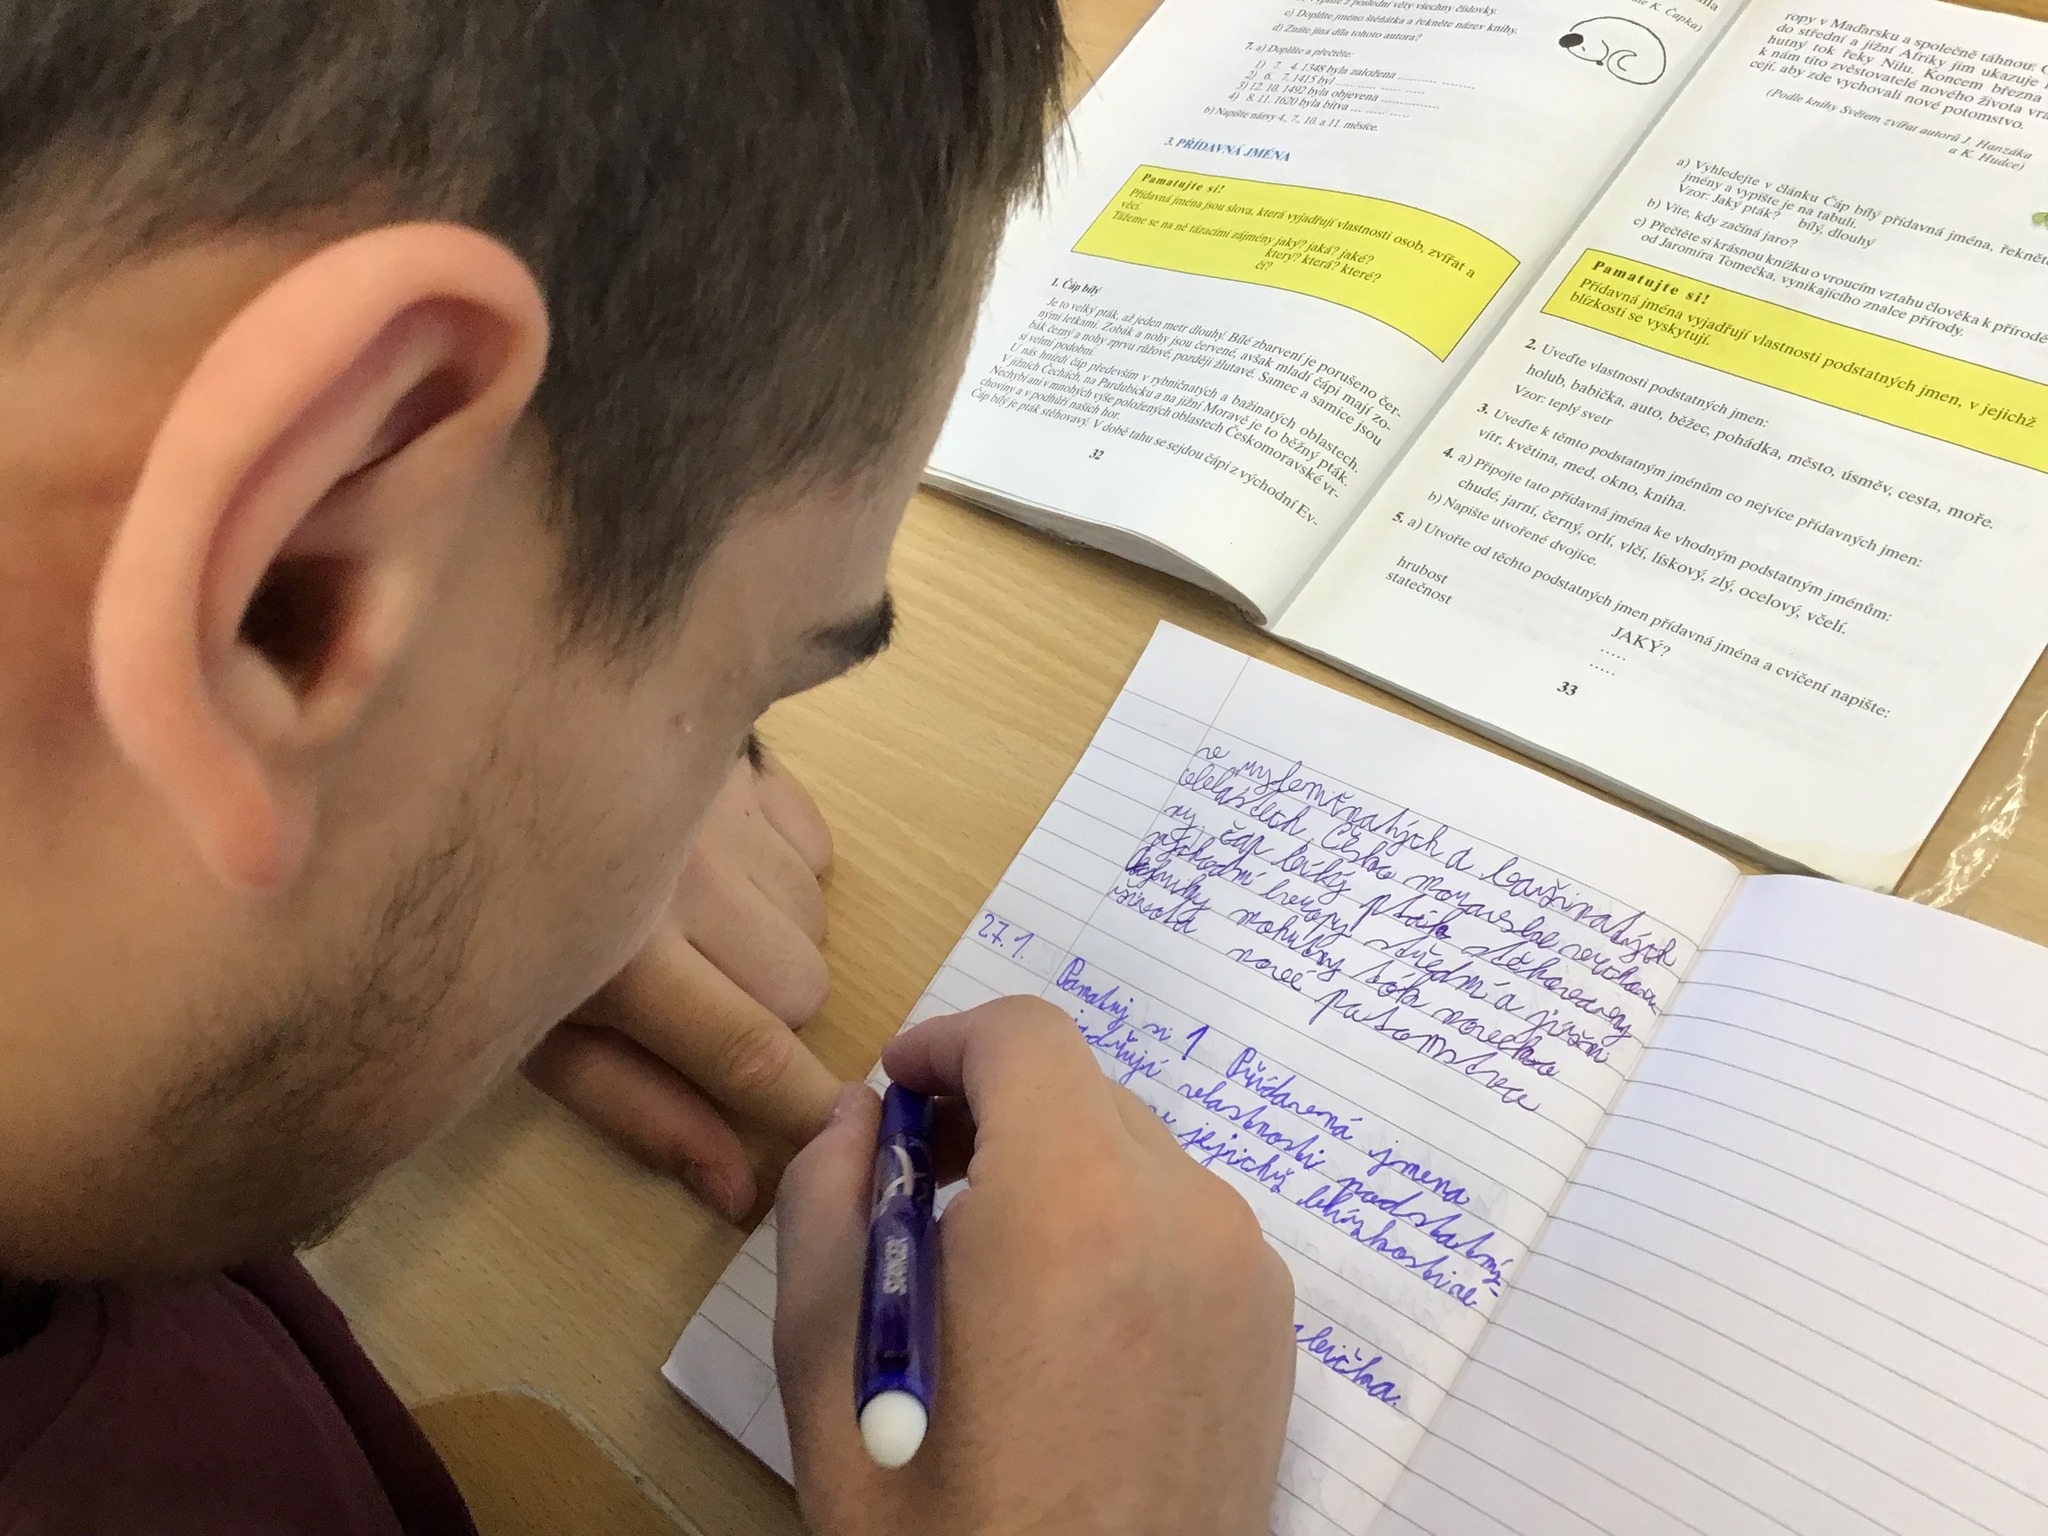 z poslední věty všechny číslovky.
c) Doplňte jméno štěňátka a řekněte název knihy.
d) Znáte jiná díla tohoto autora?
K. Čapka)
7. a) Doplňte a přečtěte:
1) 7. 4. 1348 byla založena ..........
2) 6. 7. 1415 byl .....
3) 12. 10. 1492 byla objevena ..........
4) 8. 11. 1620 byla bitva .....
b) Napište názvy 4., 7., 10. a 11. měsíce.
3. PŘÍDAVNÁ JMÉNA
Pamatujte si!
Přídavná jména jsou slova, která vyjadřují vlastnosti osob, zvířat a
věcí.
Tážeme se na ně tázacími zájmény jaký? jaká? jaké?
který? která? které?
čí?
1. Čáp bílý
Je to velký pták, až jeden metr dlouhý. Bílé zbarvení je porušeno čer-
nými letkami. Zobák a nohy jsou červené, avšak mladí čápi mají zo-
bák černý a nohy zprvu růžové, později žlutavé. Samec a samice jsou
si velmi podobní.
U nás hnízdí čáp především v rybničnatých a bažinatých oblastech.
V jižních Čechách, na Pardubicku a na jižní Moravě je to běžný pták.
Nechybí ani v mnohých výše položených oblastech Českomoravské vr-
choviny a v podhůří našich hor.
Čáp bílý je pták stěhovavý. V době tahu se sejdou čápi z východní Ev-
32
ropy v Maďarsku a společně táhnou.
do střední a jižní Afriky jim ukazuje
hutný tok řeky Nilu. Koncem března
k nám tito zvěstovatelé nového života
cejí, aby zde vychovali nové potomstvo.
(Podle knihy Světem zvířat autorů J. Hanzáka
a K. Hudce)
a) Vyhledejte v článku Čáp bílý přídavná jména, řekněte
jmény a vypište je na tabuli.
Vzor: Jaký pták? bílý, dlouhý
b) Víte, kdy začíná jaro?
c) Přečtěte si krásnou knížku o vroucím vztahu člověka k přírodě
od Jaromíra Tomečka, vynikajícího znalce přírody.
Pamatujte si!
Přídavná jména vyjadřují vlastnosti podstatných jmen, v jejichž
blízkosti se vyskytují.
2. Uveďte vlastnosti podstatných jmen:
holub, babička, auto, běžec, pohádka, město, úsměv, cesta, moře.
Vzor: teplý svetr
3. Uveďte k těmto podstatným jménům co nejvíce přídavných jmen:
vítr, květina, med, okno, kniha.
4. a) Připojte tato přídavná jména ke vhodným podstatným jménům:
chudé, jarní, černý, orlí, vlčí, lískový, zlý, ocelový, včelí.
b) Napište utvořené dvojice.
5. a) Utvořte od těchto podstatných jmen přídavná jména a cvičení napište:
JAKÝ?
hrubost .....
statečnost .....
33
a bažinatých
oblastech
ny čap bílý pták stěhovavy
východní Evropy střední a jižní
nové potomstvo
27. 1.
Pamatuj si 1 Přídavná jmena
vlastnosti podstatný-
jejichž blízkosti
SANAKIDS